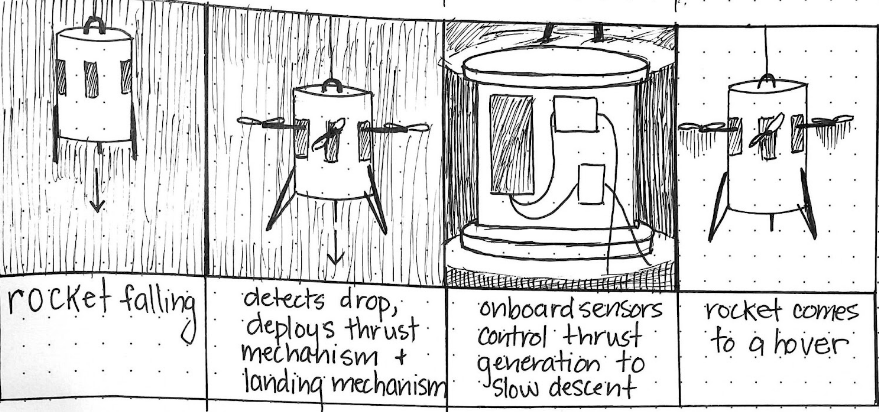 rocket falling
detects drop,
deploys thrust
mechanism +
landing mechanism
onboard sensors
control thrust
generation to
slow descent
rocket comes
to a hover